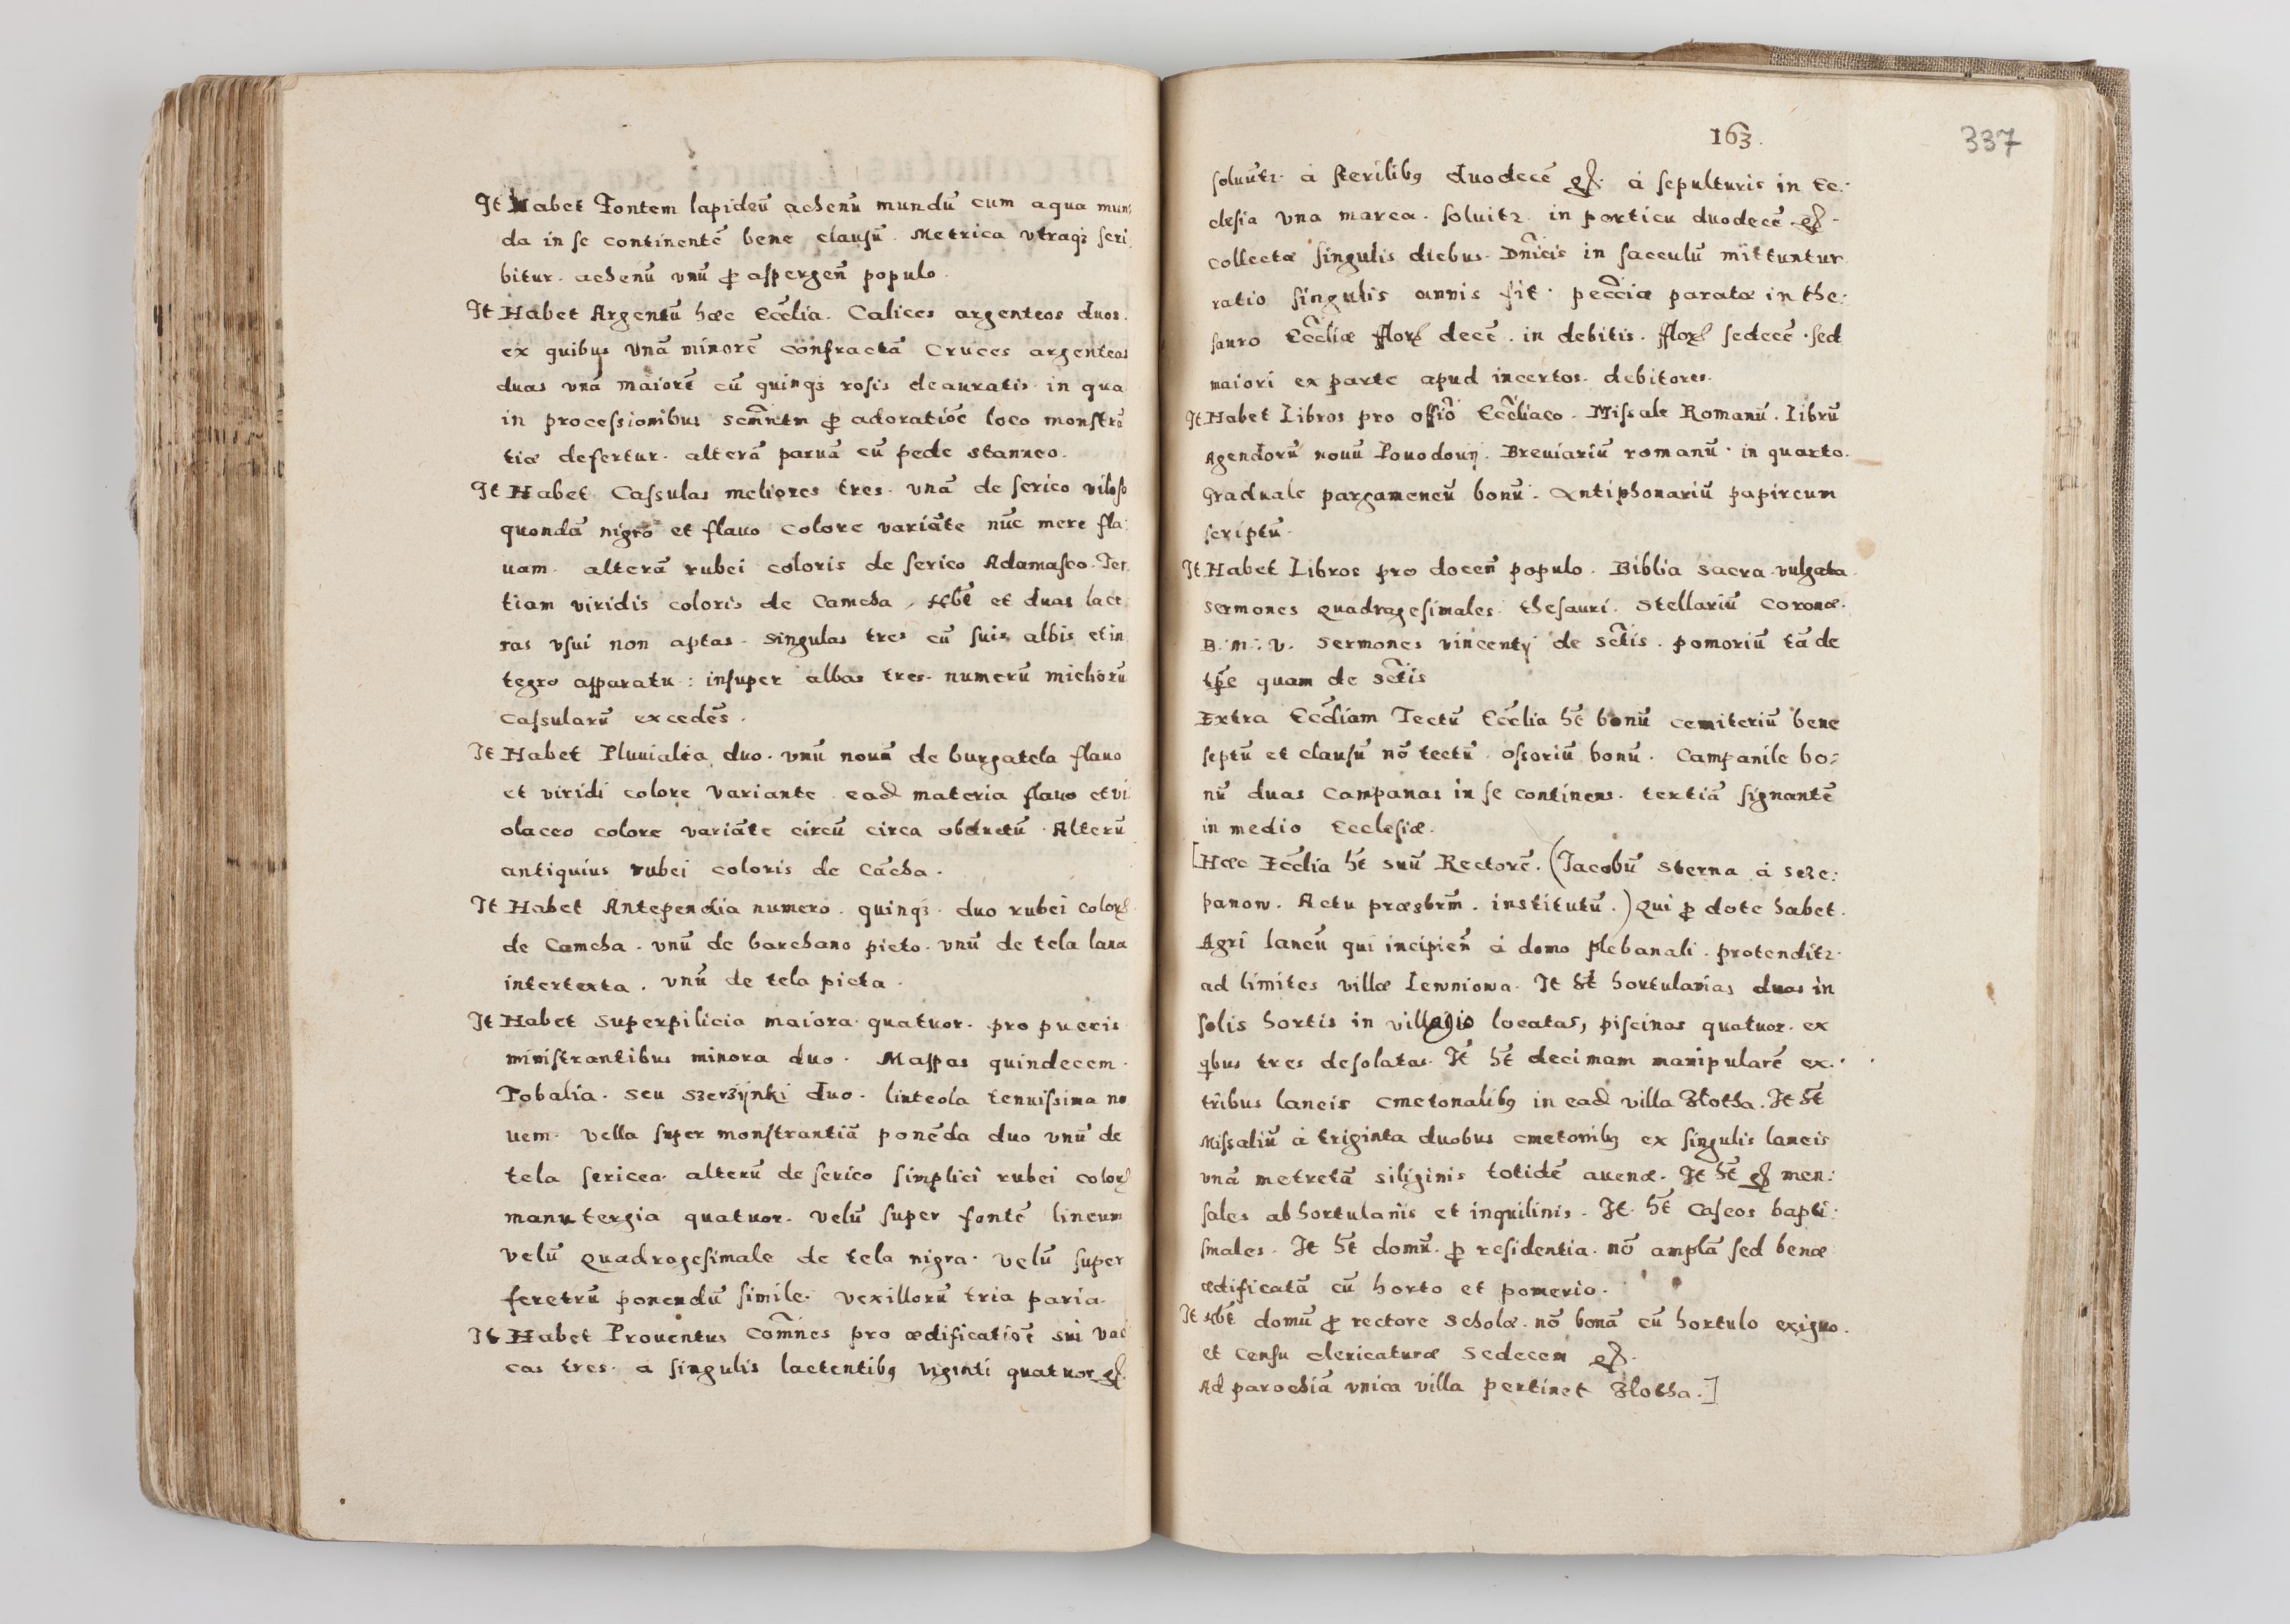 It Habet Fontem lapideū achenū mundū cum aqua mun
da in se continentē bene clausū. Metrica vtraqȝ scri
bitur. achenū vnū ꝓ aspergen̄ populo.
It Habet Argentū hæc Eccl̄ia. Calices argenteos duos.
ex quibus vnā minorē confractā Cruces argenteas
duas vnā maiorē cū quinqȝ rosis deauratis in qua
in processionibus ꝓ adoratiōe loco monstrā
tiæ defertur. alterā paruā cū pede stanneo.
It Habet Cassulas meliores tres. vnā de serico viloso
quondā nigro et flauo colore variāte nūc mere fla:
uam. alterā rubei coloris de serico Adamasco. Ter
tiam viridis coloris de Camcha, et duas lace
ras vsui non aptas. singulas tres cū suis albis et in
tegro apparatu: insuper albas tres. numerū
Cassularū excedēs.
It Habet Pluuialia duo. vnū nouū de burgatela flauo
et viridi colore variante. ead materia flauo et vi
olaceo colore variāte circū circa obductū. Alterū
antiquius rubei coloris de Cācha.
It Habet Antependia numero. quinqȝ. duo rubei color
de Camcha. vnū de barchano picto. vnū de tela lana
intertexta. vnū de tela picta.
It Habet Superpilicia maiora quatuor. pro pueris
ministrantibus minora duo. Mappas quindecem.
Tobalia. seu duo. linteola tenuissima no
uem. vella super monstrantiā ponēda duo vnū de
tela sericea. alterū de serico simplici rubei color
manutergia quatuor. velū super fontē lineum
velū quadragesimale de tela nigra. velū super
feretrū ponendū simile. vexillorū tria paria.
It Habet Prouentus Com̄nes pro ædificatiōe sui vac
cas tres. a singulis lactentibꝯ viginti quatuor gſ.
163.
337
soluūtr. à sterilibꝯ duodecē gſ. à sepulturis in Ec:
clesia vna marca. soluitr. in porticu duodecē gſ.
collectæ singulis diebus. Dn̄icis in sacculū mittuntur
ratio singulis annis fit. pecc̄iæ paratæ in the:
sauro Eccl̄iæ fflor decē. in debitis. fflor sedecē. sed
maiori ex parte apud incertos. debitores.
It Habet Libros pro offiō Eccl̄iaco. Missale Romanū. Librū
Agendorū nouū Pouodouij. Breuiariū romanū. in quarto.
Graduale pargameneū bonū. Antiphonariū papireum
scriptū.
It Habet Libros pro docen̄ populo. Biblia sacra vulgata.
Sermones quadragesimales thesauri. Stellariū Coronæ.
B. M. V. Sermones vincentij de sctis. pomoriū tā de
tp̄e quam de sctis
Extra Eccl̄iam Tectū Eccl̄ia ht̄ bonū cemiteriū bene
septū et clausū nō tectū. ossoriū bonū. Campanile bo:
nū duas Campanas in se continens. tertiā signantē
in medio Ecclesiæ.
[Hæc Eccl̄ia ht̄ suū Rectorē. (Jacobū Sterna à Scze:
panow. Actu præsbrm̄. institutū.) Qui ꝓ dote habet.
Agri laneū qui incipien̄ à domo plebanali. protenditr.
ad limites villæ Lewniowa. It ht̄ hortulanias duas in
solis hortis in villagio locatas, piscinas quatuor. ex
qbus tres desolatas. It ht̄ decimam manipularē ex.
tribus laneis Cmetonalibꝯ in ead villa Złotha. It ht̄
Missaliū à triginta duobus cmetonibꝯ ex singulis laneis
vnā metretā siliginis totidē auenæ. It ht̄ gſ men:
sales ab hortulanis et inquilinis. It. ht̄ Caseos bapti:
smales. It ht̄ domū. ꝓ residentia. nō amplā sed benæ
ædificatā cū horto et pomerio.
It domū ꝓ rectore scholæ. nō bonā cū hortulo exiguo.
et Censu clericaturæ Sedecem gſ.
Ad parochiā vnica villa pertinet Złotha.]